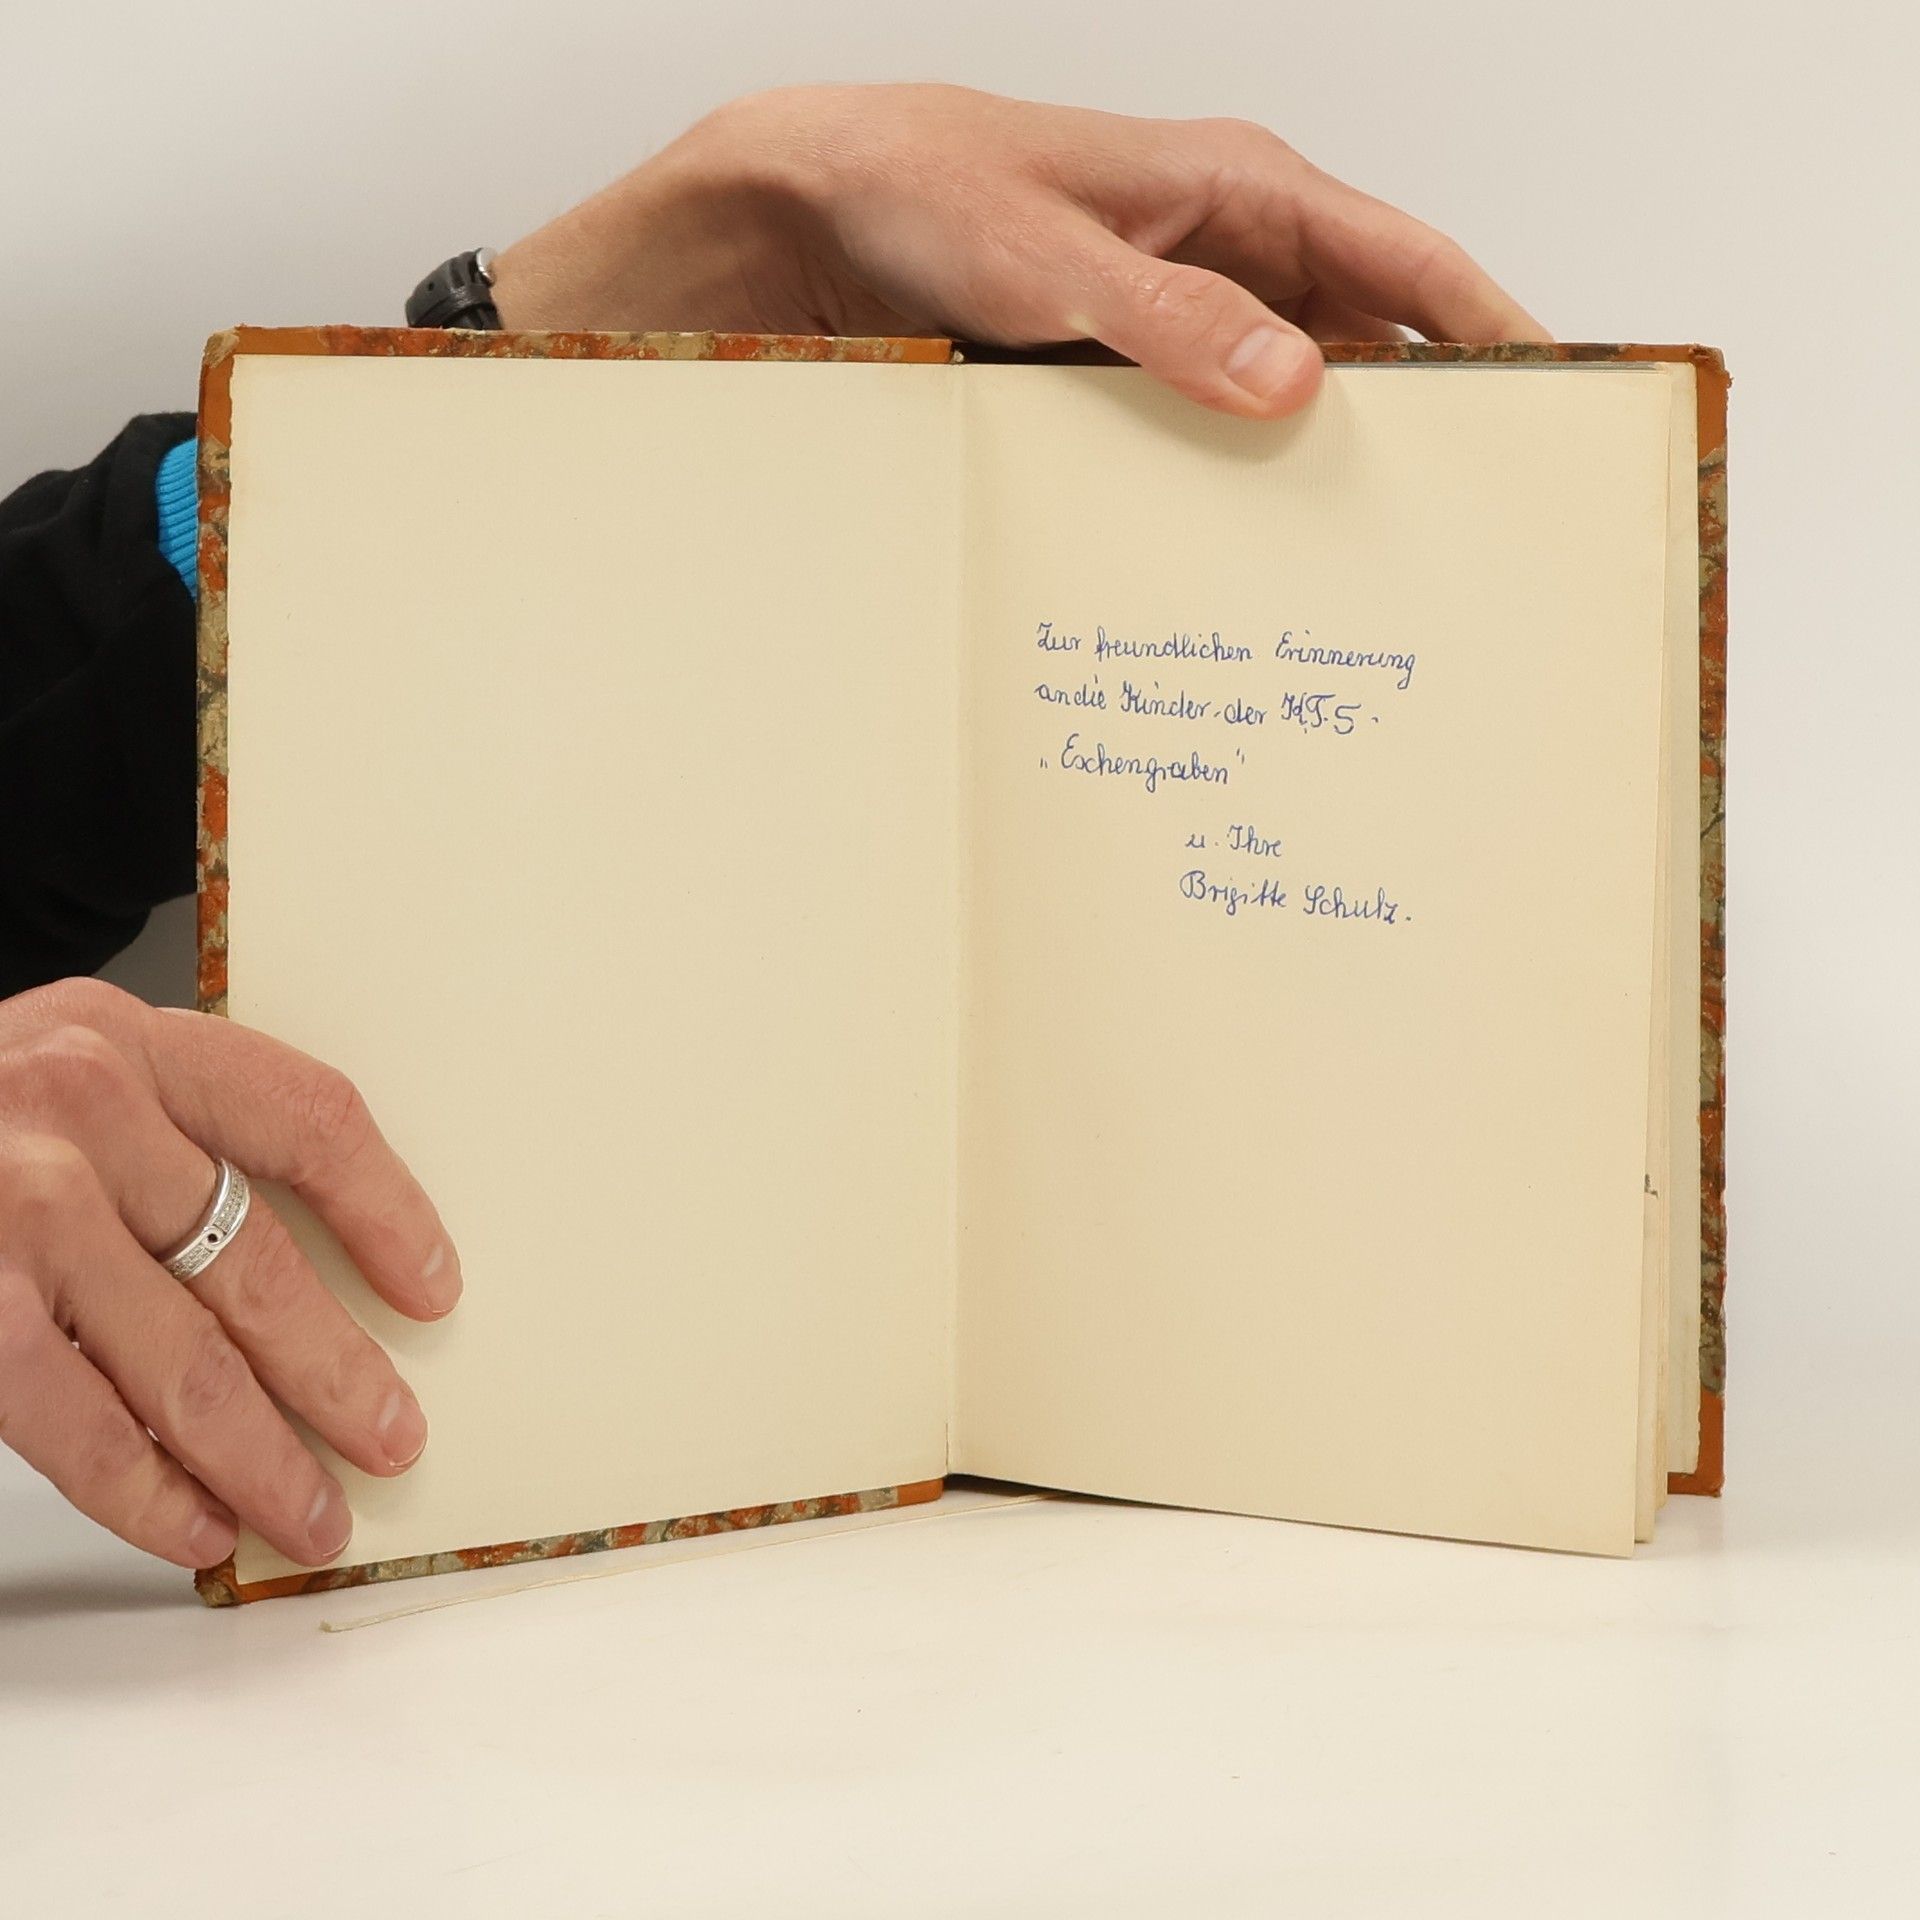 Zur freundlichen Erinnerung
an die Kinder der K.T.S.
„Eschengraben"
u. Ihre
Brigitte Schulz.